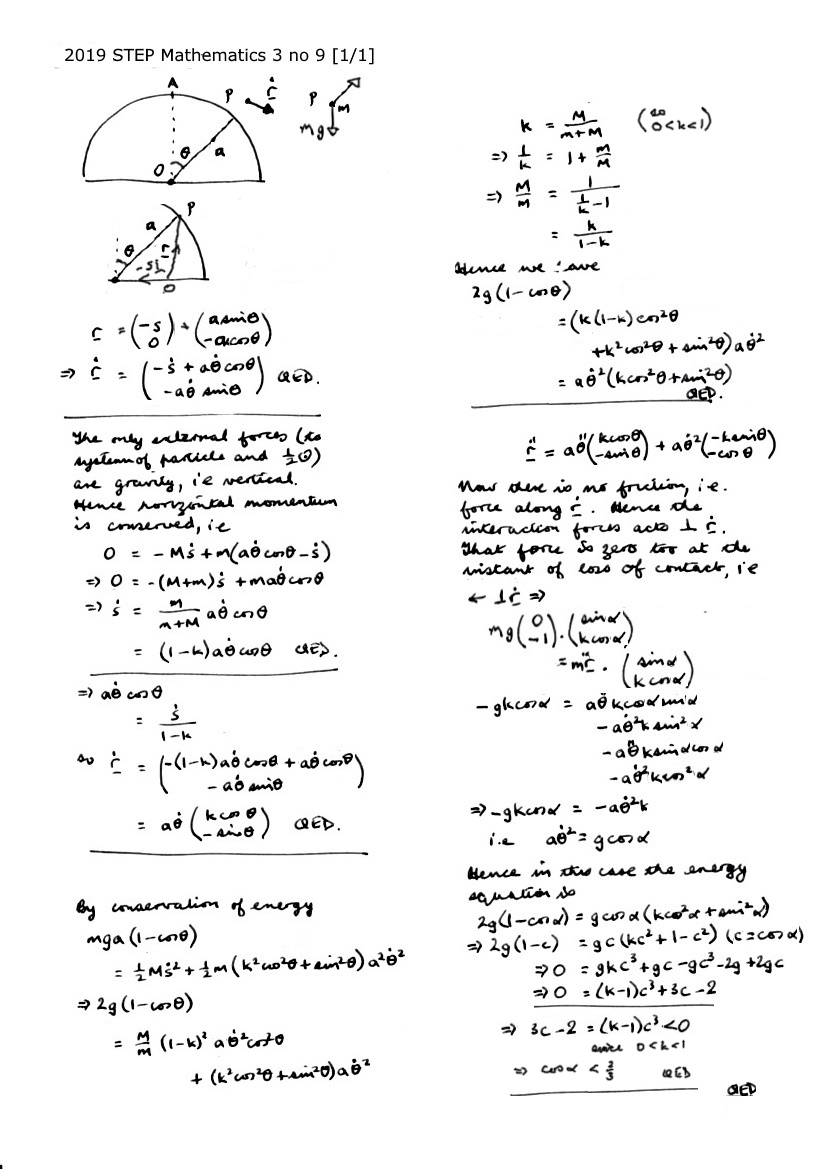 2019 STEP Mathematics 3 no 9 [1/1]
A
P ṙ
P M
mg
θ a
O
P
a
θ r
-si
O
r = (-s / 0) + (a sinθ / -a cosθ)
⇒ ṙ = (-ṡ + aθ̇ cosθ / -aθ̇ sinθ) QED.
The only external forces (to
system of particle and ½O)
are gravity, i.e vertical.
Hence horizontal momentum
is conserved, i.e
0 = -Mṡ + m(aθ̇ cosθ - ṡ)
⇒ 0 = -(M+m)ṡ + maθ̇ cosθ
⇒ ṡ = m/(m+M) aθ̇ cosθ
= (1-k)aθ̇ cosθ QED.
⇒ aθ̇ cosθ
= ṡ/(1-k)
so ṙ = (-(1-k)aθ̇ cosθ + aθ̇ cosθ / -aθ̇ sinθ)
= aθ̇ (k cosθ / -sinθ) QED.
By conservation of energy
mga(1-cosθ)
= ½Mṡ² + ½m(k²cos²θ + sin²θ)a²θ̇²
⇒ 2g(1-cosθ)
= M/m (1-k)² aθ̇²cos²θ
+ (k²cos²θ + sin²θ)aθ̇²
k = M/(m+M) (so 0<k<1)
⇒ 1/k = 1 + m/M
⇒ M/m = 1/(1/k - 1)
= k/(1-k)
Hence we have
2g(1-cosθ)
= (k(1-k)cos²θ
+ k²cos²θ + sin²θ)aθ̇²
= aθ̇²(kcos²θ + sin²θ)
QED.
r̈ = aθ̈(kcosθ / -sinθ) + aθ̇²(-ksinθ / -cosθ)
Now there is no friction, i.e.
force along ṙ. Hence the
interaction forces acts ⊥ ṙ.
That force is zero too at the
instant of loss of contact, i.e
← ⊥ṙ ⇒
mg(0 / -1).(sinα / kcosα)
= mr̈ . (sinα / kcosα)
-gkcosα = aθ̈ kcosαsinα
- aθ̇²k sin²α
- aθ̈ksinαcosα
- aθ̇²kcos²α
⇒ -gkcosα = -aθ̇²k
i.e aθ̇² = gcosα
Hence in this case the energy
equation is
2g(1-cosα) = gcosα(kcos²α + sin²α)
⇒ 2g(1-c) = gc(kc² + 1 - c²) (c = cosα)
⇒ 0 = gkc³ + gc - gc³ - 2g + 2gc
⇒ 0 = (k-1)c³ + 3c - 2
⇒ 3c - 2 = (k-1)c³ < 0
since 0<k<1
⇒ cosα < 2/3 QED
QED